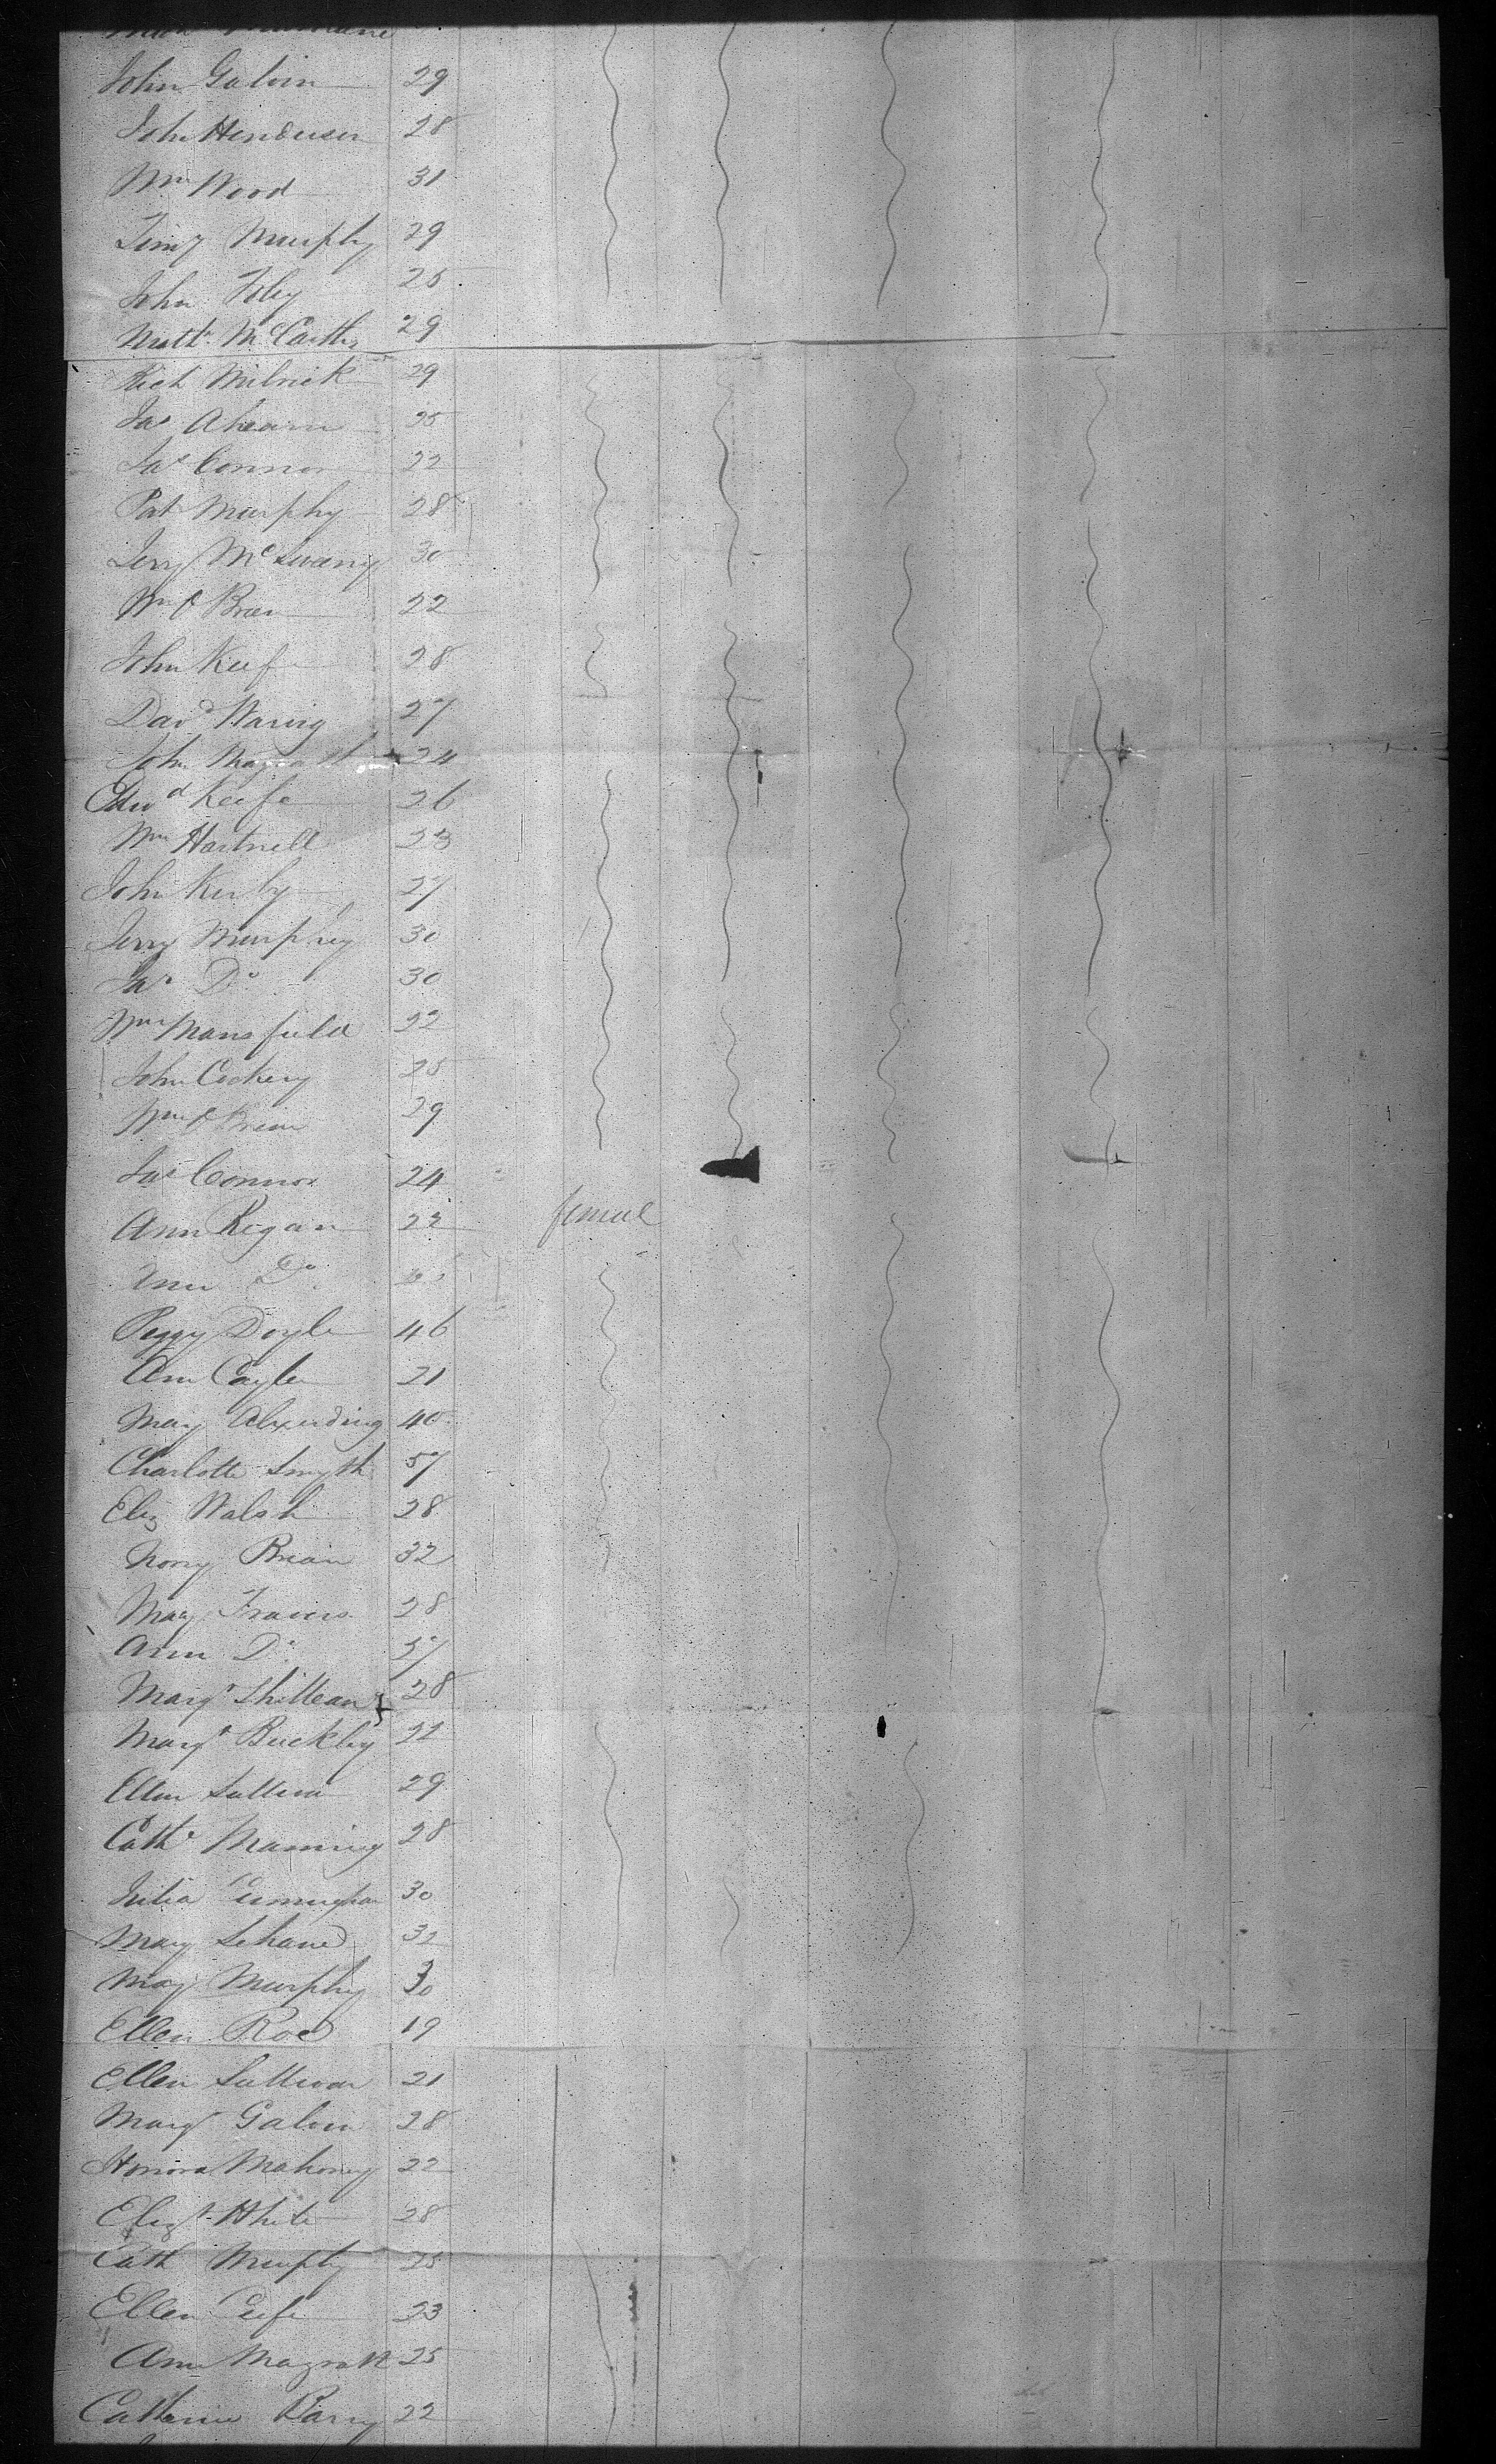 John Galvin 29
John Henderson 28
Wm Wood 31
Timy Murphy 29
John Foley 25
Matt. McCarthy 29
Rich 29
Jas Ahearn 25
Jas Connor 22
Pat Murphy 28
Jerry McSwany 30
Wm O Brien 22
John Keefe 28
Davd Waring 27
John Magrath 24
Edwd Keefe 26
Wm Hartnell 23
John Kerby 27
Jerry Murphy 30
Jas Do 30
Wm Mansfield 22
John Cockery 25
Wm O Brien 29
Jas Connor 24
Ann Regan 22 female
Ann Do
Peggy Doyle 46
Ann 21
Mary 40
Charlotte Smyth 57
Eliz Walsh 28
Nory Brian 32
Mary Travers 28
Ann Do 57
Margt 28
Margt Buckley 22
Ellen Sullivan 29
Cathe Manning 28
Julia Cunningham 30
Mary Lehane 32
Mary Murphy 30
Ellen Roe 19
Ellen Sullivan 21
Margt Galvin 28
Honora Mahoney 22
Elizth White 28
Cath Murphy 25
Ellen Keefe 23
Ann Magrath 25
Catherine Barry 22